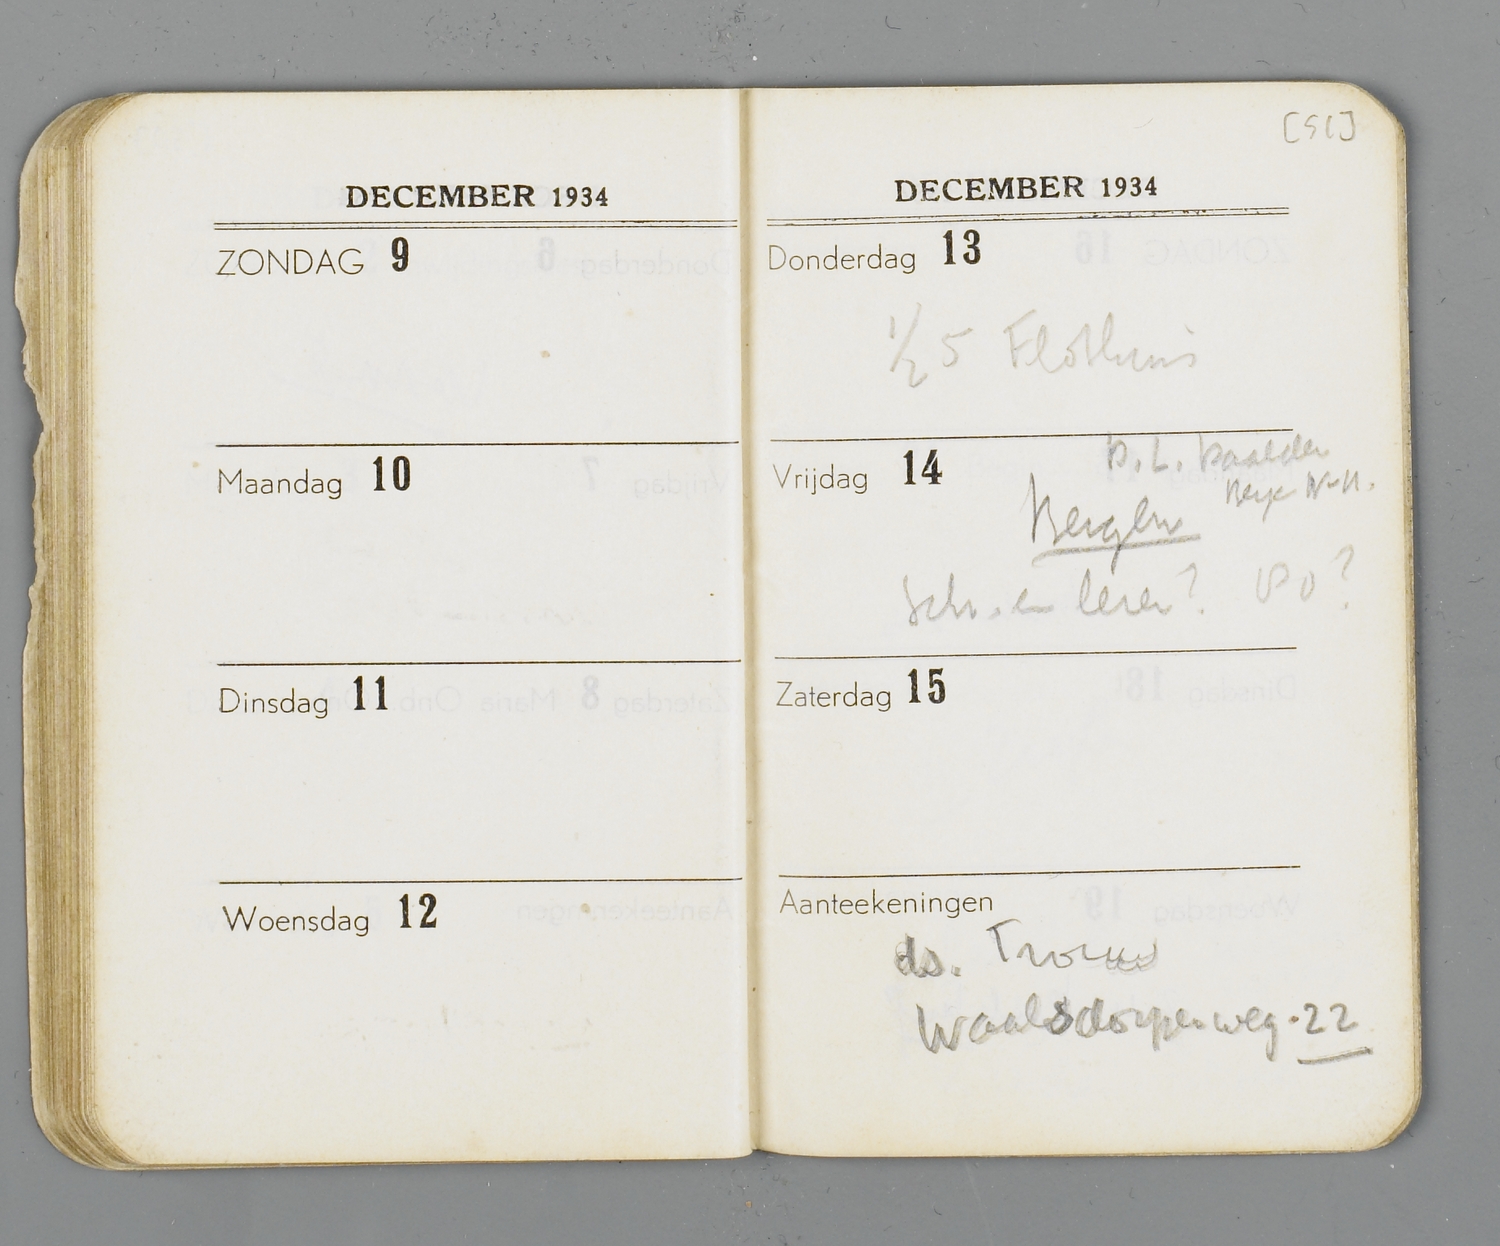 DECEMBER 1934
ZONDAG 9
Maandag 10
Dinsdag 11
Woensdag 12
[51]
DECEMBER 1934
Donderdag 13
1/2 5 Flothuis
Vrijdag 14
D. L. Daalder
N-H.
Bergen
schr. en lezen?
Zaterdag 15
Aanteekeningen
ds.
Waalsdorperweg. 22